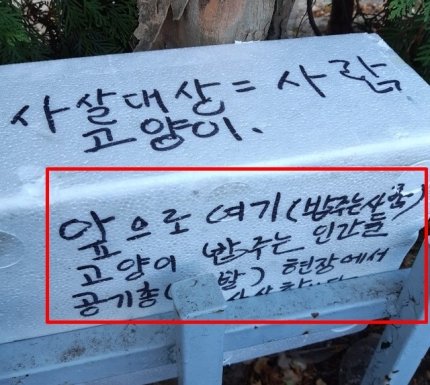 사살대상=사람
고양이.
앞으로 여기(밥주는사람)
고양이 밥주는 인간들
공기총( 발) 현장에서